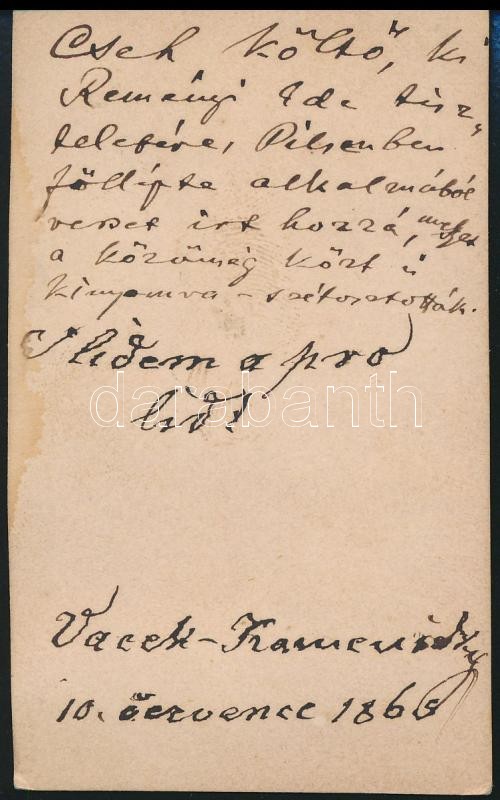 Cseh költő, ki
Reményi Ede tisz„
teletére, Pilsenben
föllépte alkalmából
verset irt hozzá, melyet
a közönség közt is
kinyomva - szétosztották.
S lidem a pro
lid!
Vacek-Kamenický
10. července 186
darabanth